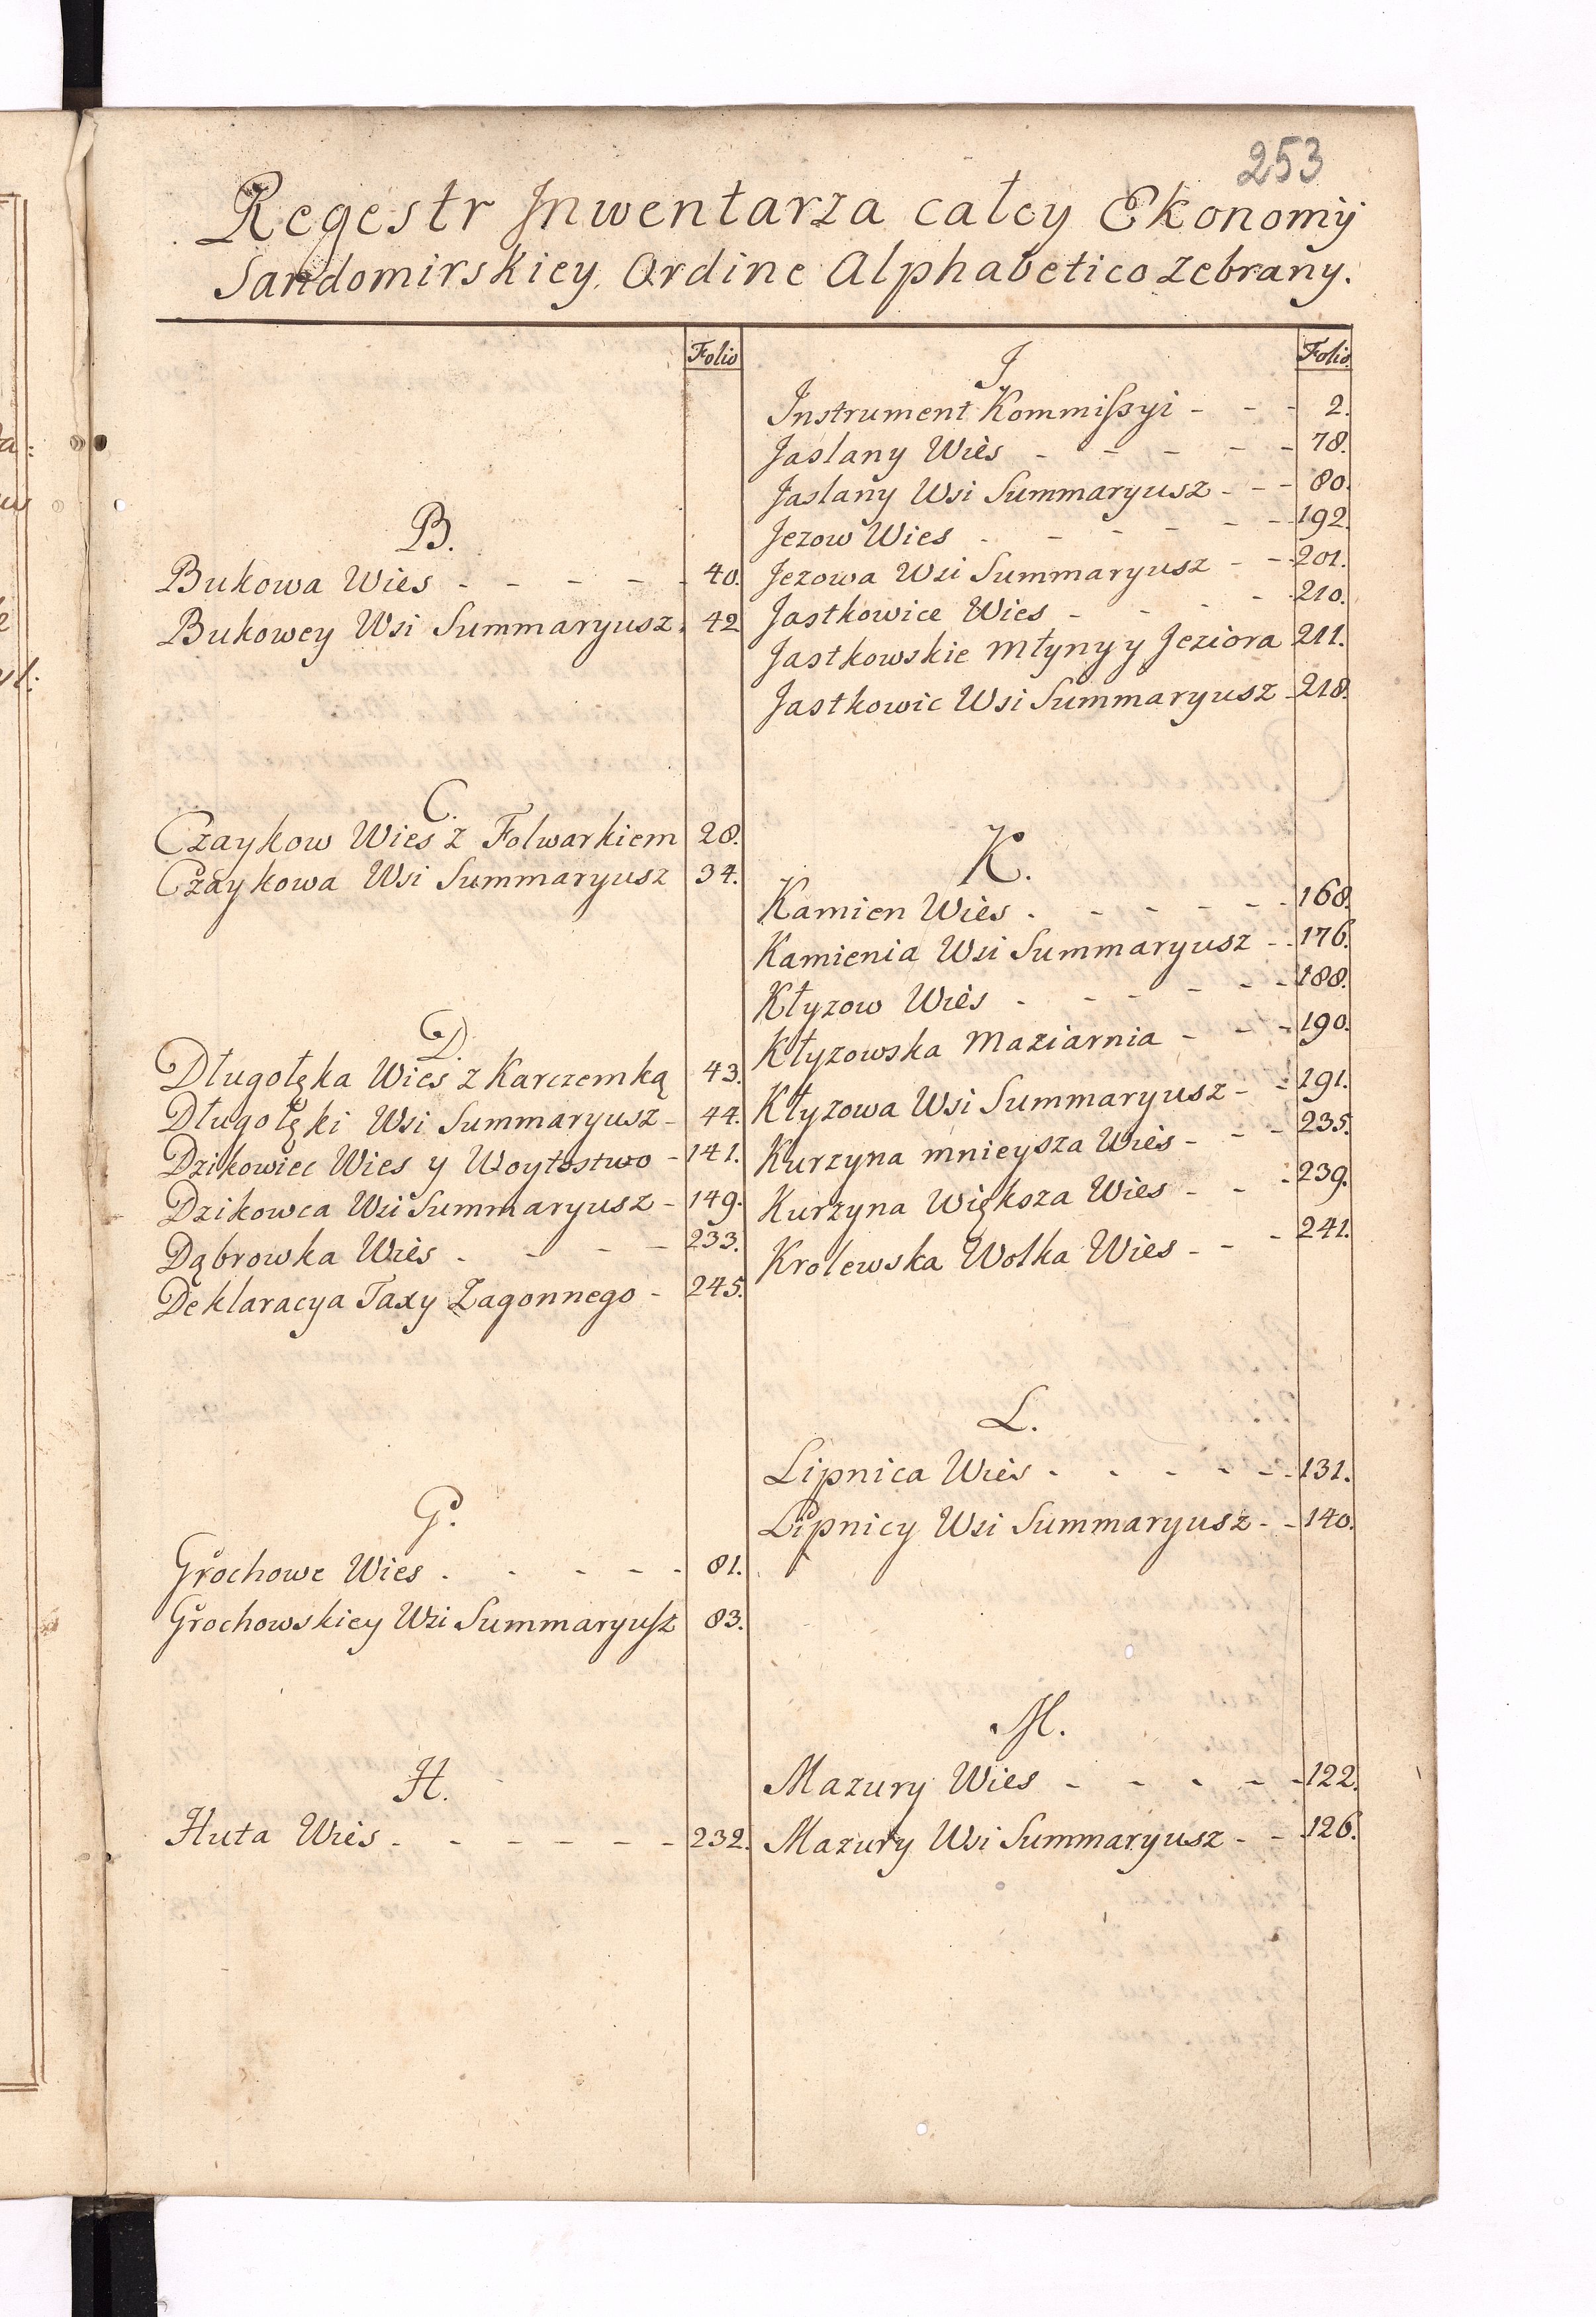 253
Regestr Inwentarza całey Ekonomÿ
Sandomirskiey Ordine Alphabetico zebrany.
Folio
B.
Bukowa Wies - - - - - 40.
Bukowey Wsi Summaryusz. 42
C.
Czaykow Wies z Folwarkiem 28.
Czaykowa Wsi Summaryusz 34.
D.
Długołęka Wies z Karczemką 43.
Długołęki Wsi Summaryusz - 44.
Dzikowiec Wies y Woytostwo - 141.
Dzikowca Wsi Summaryusz - 149.
Dąbrowka Wies - - - - 233.
Deklaracya Taxy Zagonnego - 245.
G.
Grochowe Wies - - - - - 81.
Grochowskiey Wsi Summaryusz 83.
H.
Huta Wies - - - - - - 232.
Folio
J.
Instrument Kommissyi - - - 2.
Jaslany Wies - - - - - 78.
Jaslany Wsi Summaryusz - - - 80.
Jezow Wies - - - - - - 192.
Jezowa Wsi Summaryusz - - 201.
Jastkowice Wies - - - - 210.
Jastkowskie Młyny y Jeziora 211.
Jastkowic Wsi Summaryusz - 218.
K.
Kamien Wies - - - - - - 168.
Kamienia Wsi Summaryusz - - 176.
Kłyzow Wies - - - - - - 188.
Kłyzowska Maziarnia - - - 190.
Kłyzowa Wsi Summaryusz - - 191.
Kurzyna mnieysza Wies - - - 235.
Kurzyna Większa Wies - - - 239.
Krolewska Wolka Wies - - - 241.
L.
Lipnica Wies - - - - - 131.
Lipnicy Wsi Summaryusz - - 140.
M.
Mazury Wies - - - - - 122.
Mazury Wsi Summaryusz - - 126.